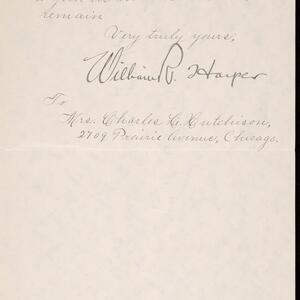 remain
Very truly yours,
William R. Harper
To
Mrs. Charles L. Hutchison,
2709 Prairie Avenue, Chicago.